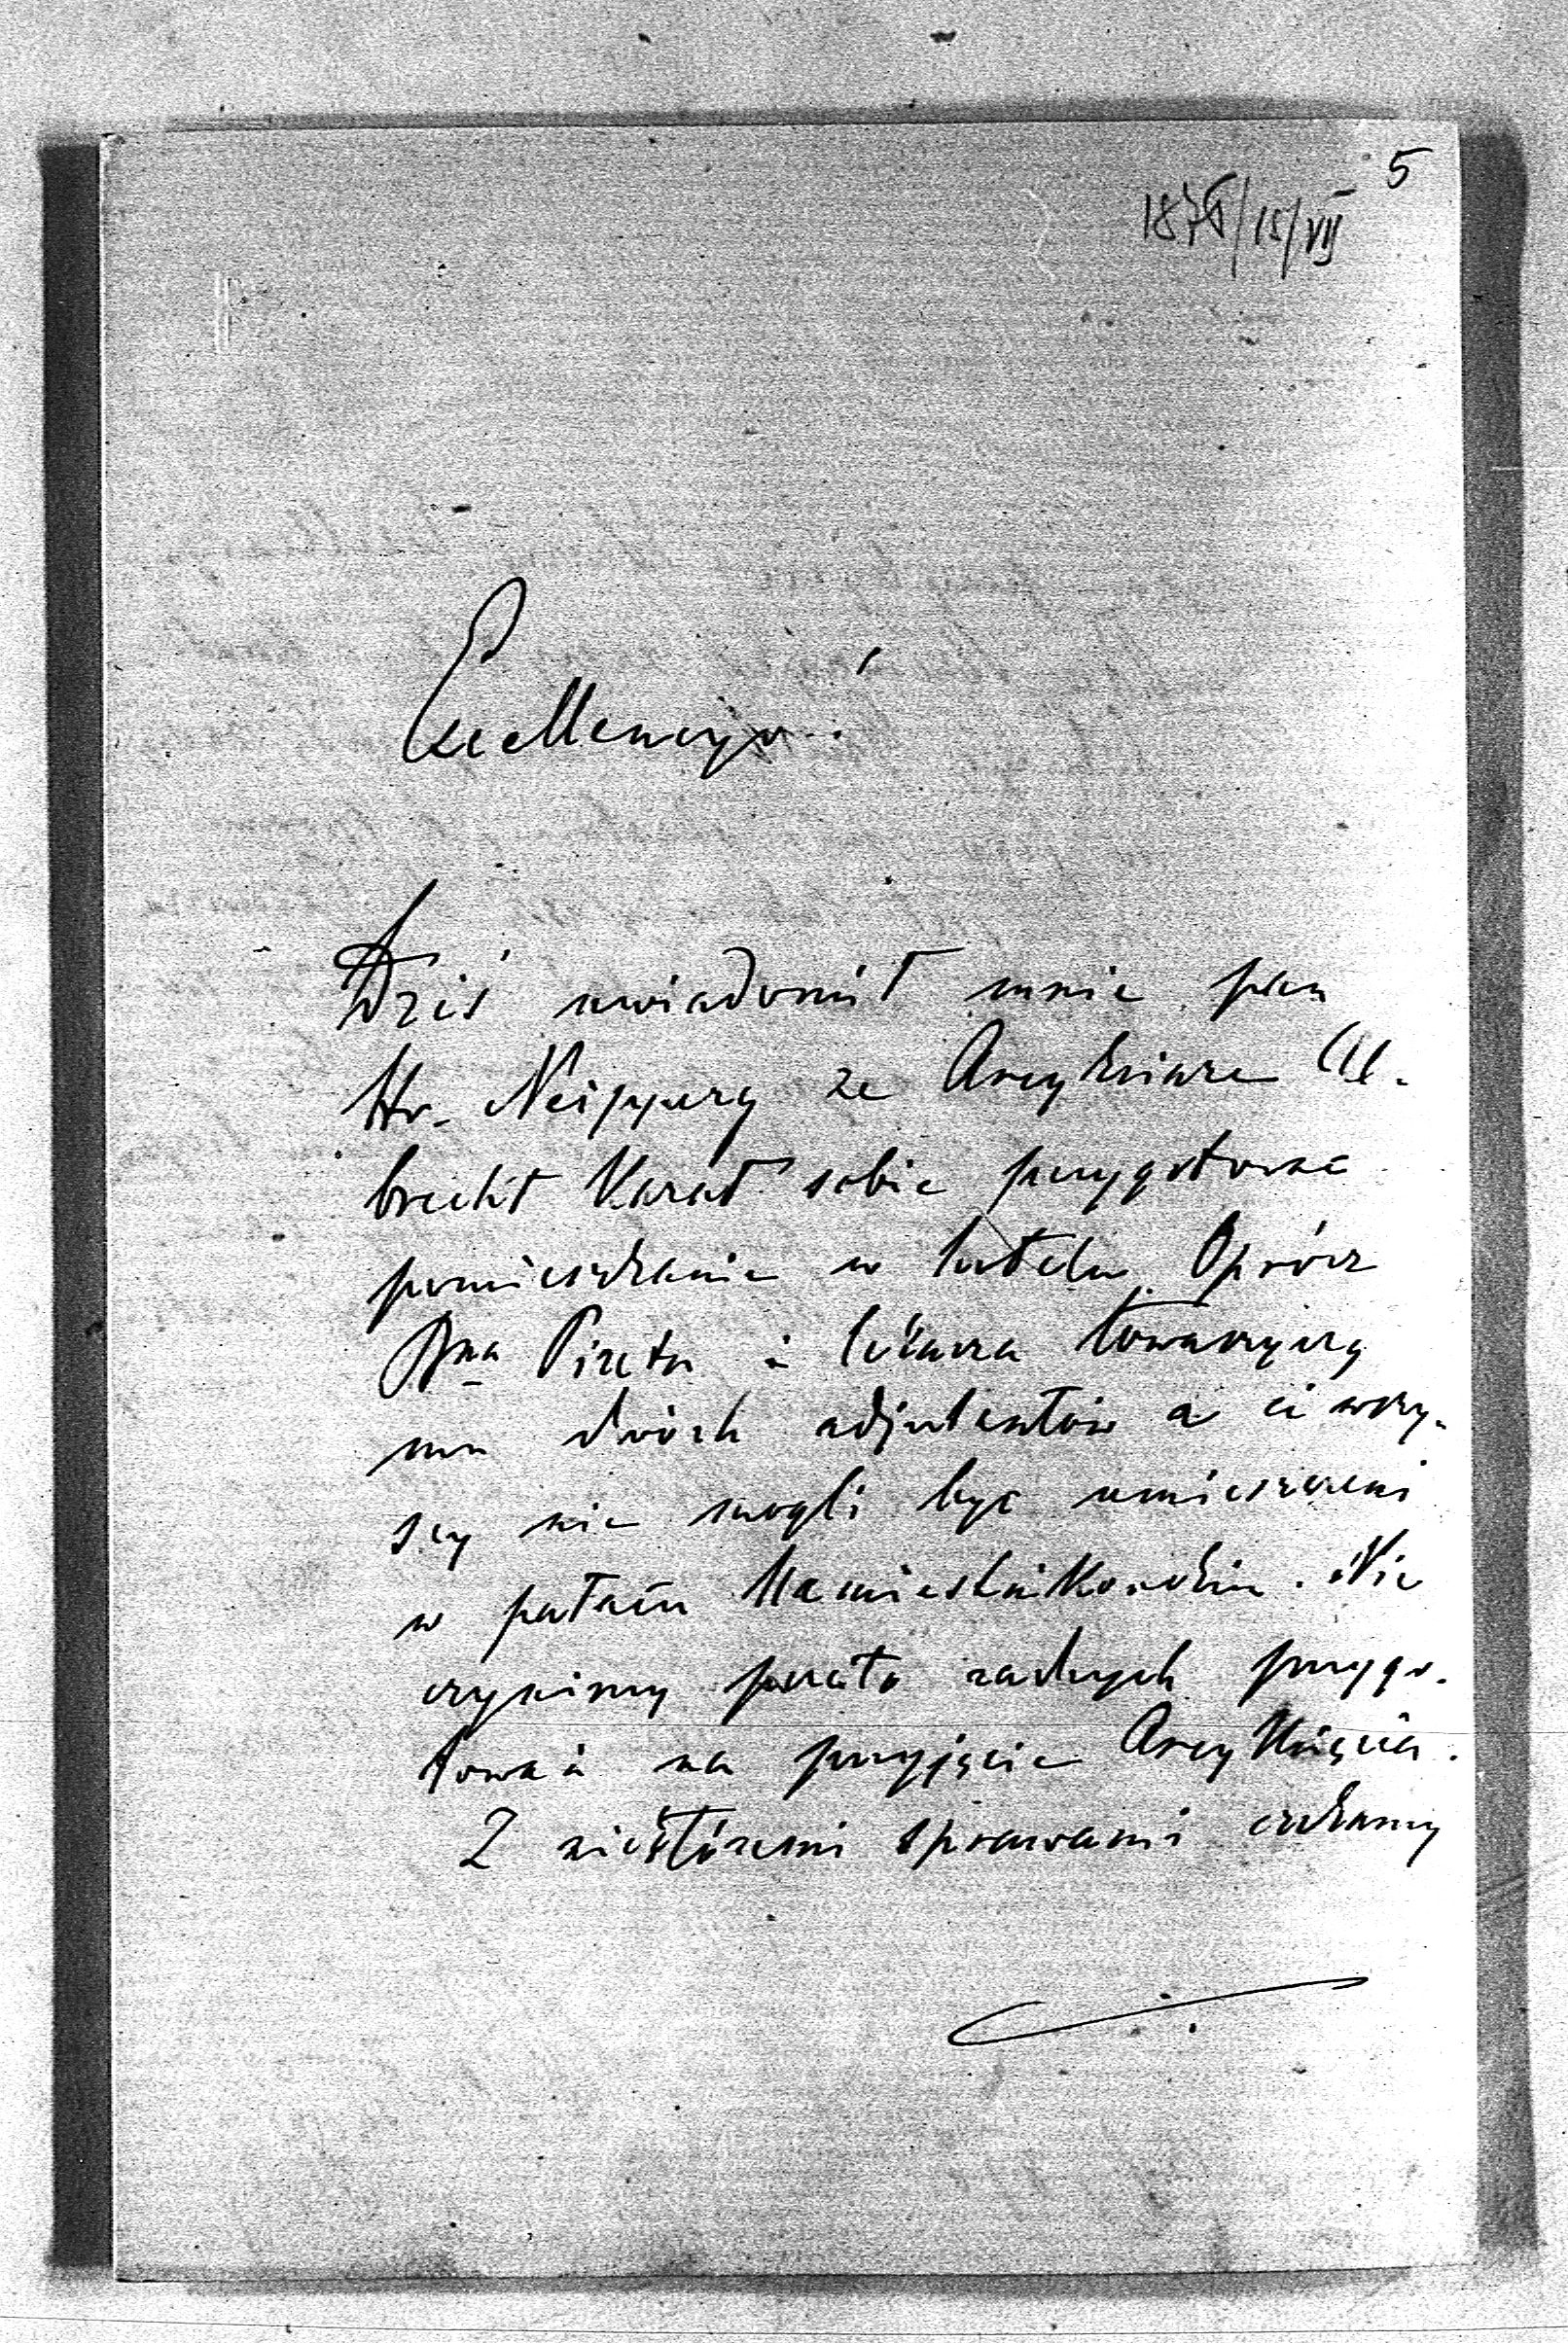 5
1876/15/VII
Excellencyo!
Dziś uwiadomił mnie pan
Hr. Neipperg ze Arcyksiaze Al-
brecht Kazał sobie przygotowac
pomieszkanie w hotelu. Oprócz
Bna Pireta i lekarza towarzyszą
mu dwóch adjutantów a ci wszy-
scy nie mogli byc umieszczeni
w pałacu Namiestnikowskim. Nie
czynimy przeto zadnych przygo-
towań na przyjęcie Arcy Księcia.
Z niektóremi sprawami czekamy